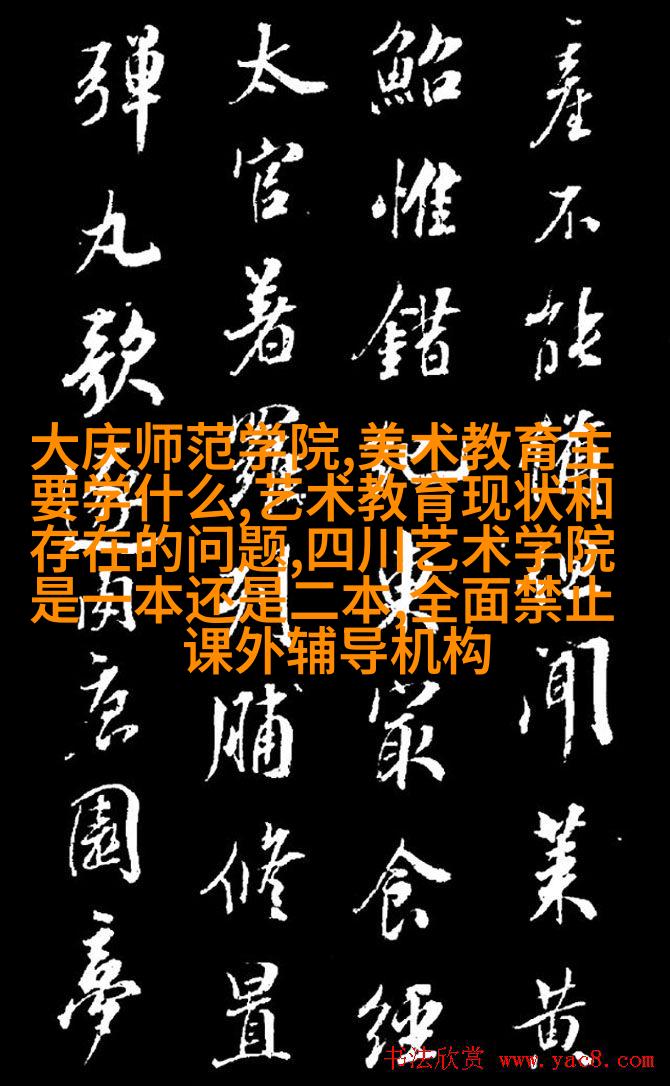 產不能講但聞萊黃
鮐惟錯記東家食經
太官著罗列脯修置
弹丸歌逐两京園夢
大庆师范学院,美术教育主
要学什么,艺术教育现状和
存在的问题,四川艺术学院
是一本还是二本,全面禁止
课外辅导机构
书法欣赏 www.yac8.com